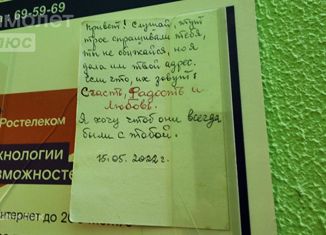 69-59-69
САМОЛЕТ
ПЛЮС
Привет! Слушай, тут
трое спрашивали тебя,
ты не обижайся, но я
дала им твой адрес.
Если что, их зовут:
Счастье, Радость и
Любовь.
Я хочу чтоб они всегда
были с тобой.
15.05.2022г.
Ростелеком
ХНОЛОГИИ
ВОЗМОЖНОСТЕ
нтернет до 20